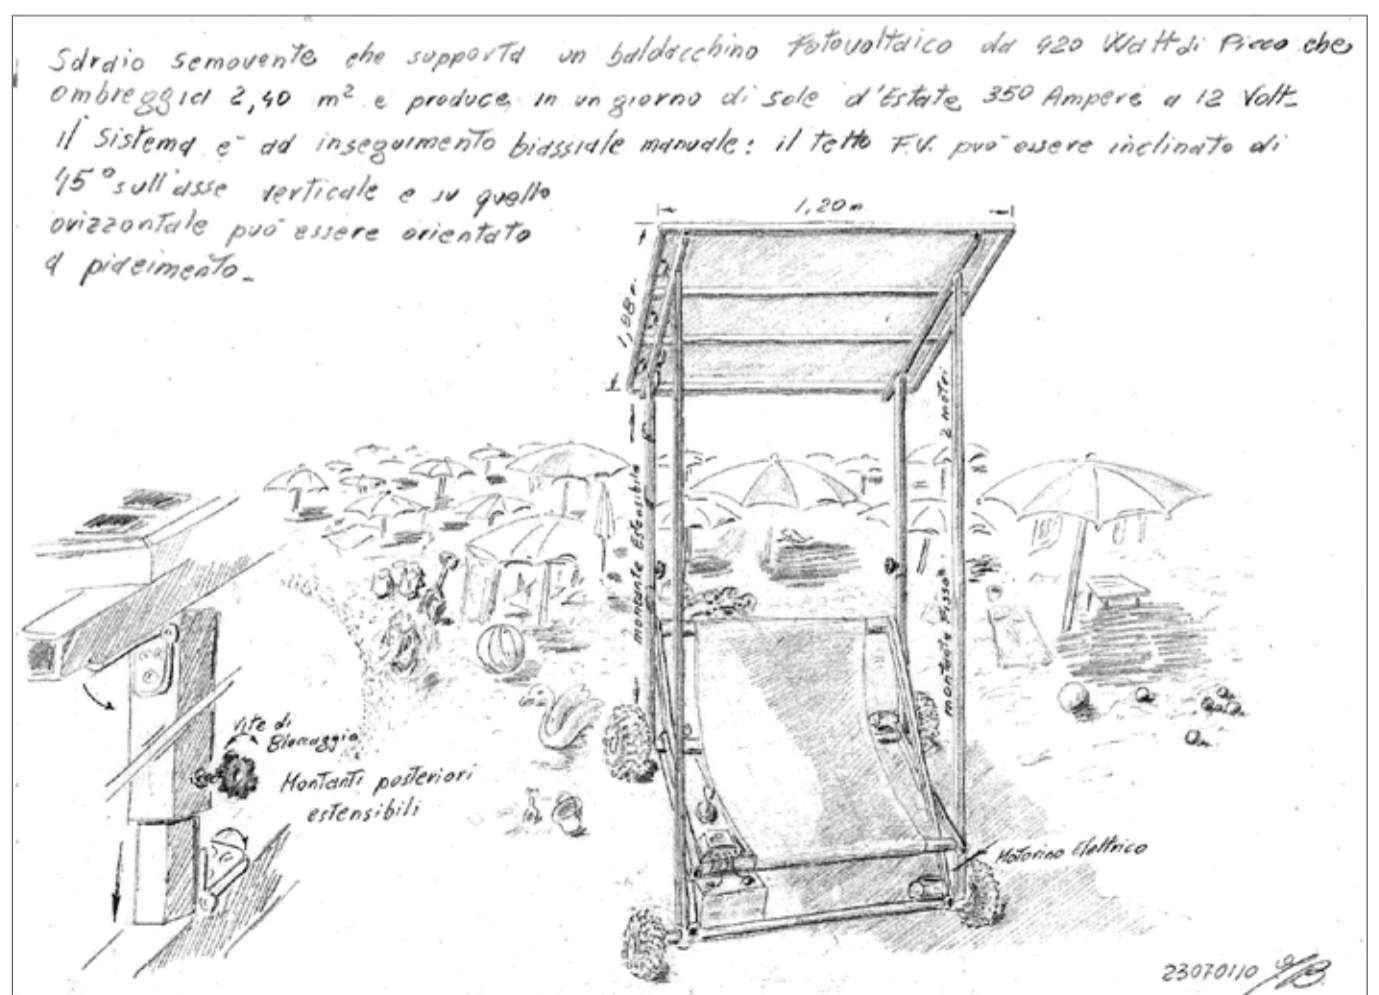 Sdraio semovente che supporta un baldacchino Fotovoltaico da 420 Watt di Picco che
ombreggia 2,40 m² e produce in un giorno di sole d'Estate 350 Ampere a 12 Volt-
il Sistema è ad inseguimento biassiale manuale: il tetto F.V. può essere inclinato di
45° sull'asse verticale e su quello
orizzontale può essere orientato
a piacimento-
1,20 m
1,98 m.
montante Estensibile
montante Fisso
2 metri
Vite di
Bloccaggio
Montanti posteriori
estensibili
Motorino Elettrico
23070110